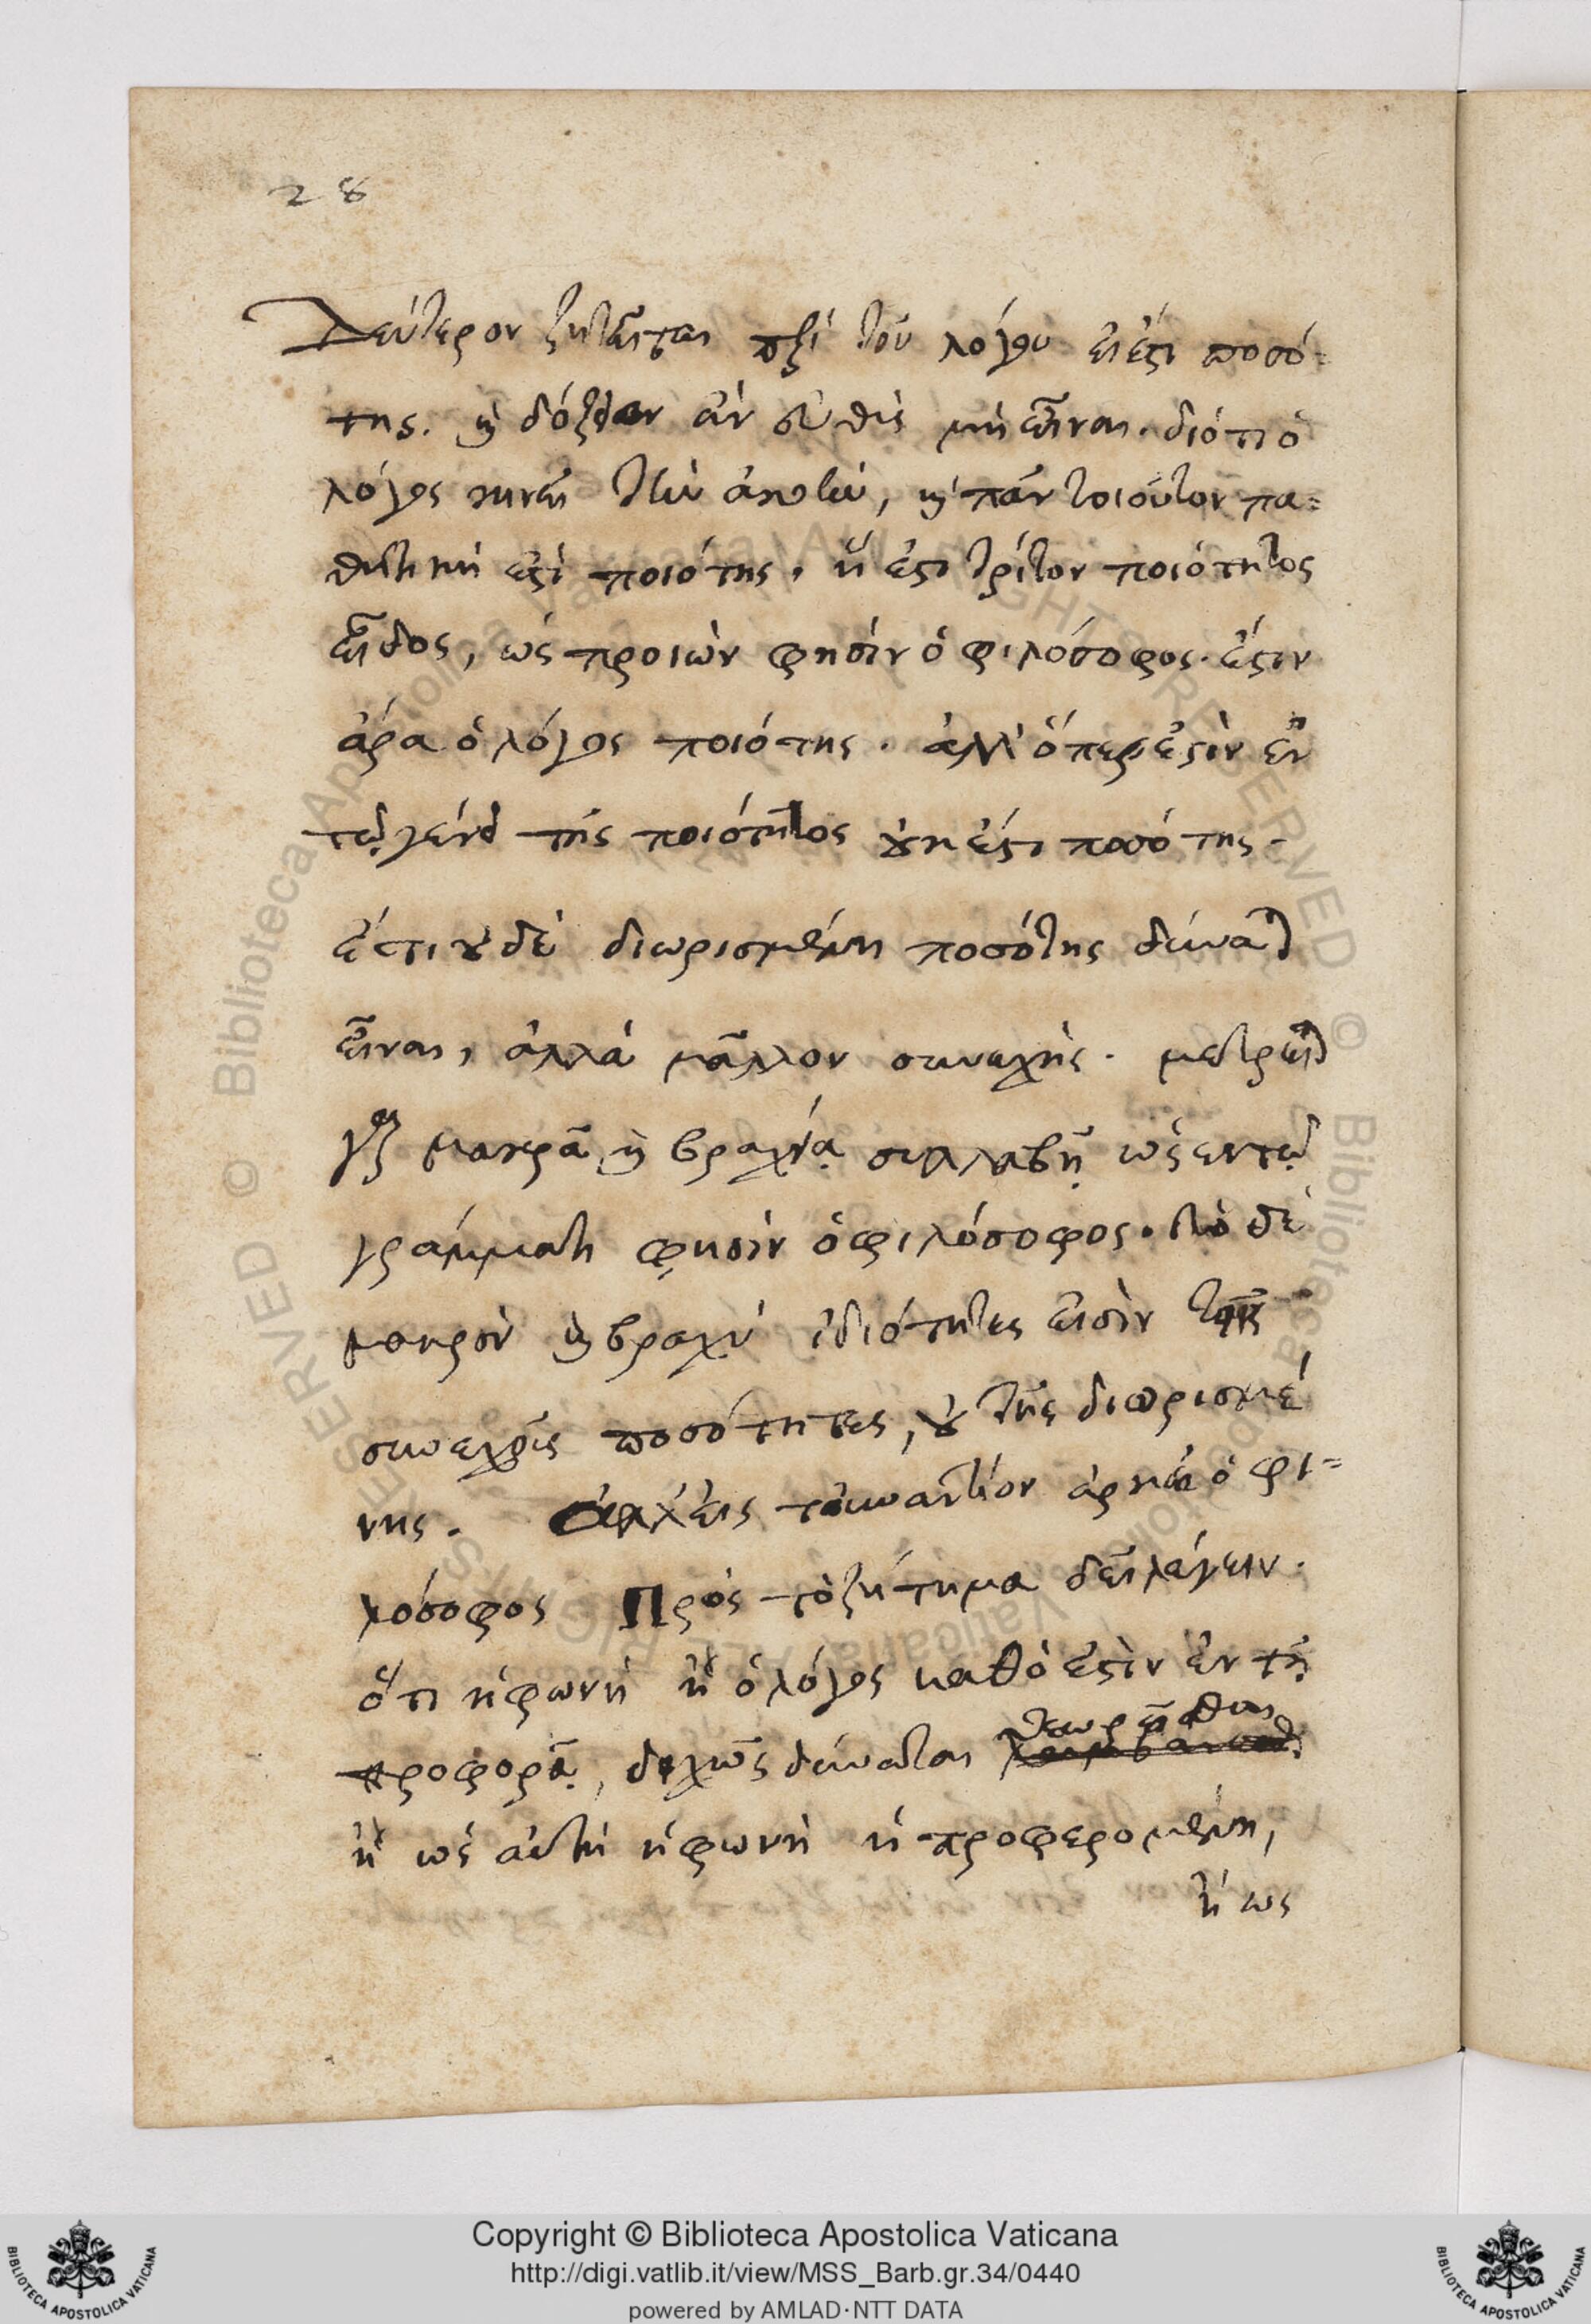 28
Δεύτερον ζητεῖται περὶ τοῦ λόγου εἰ ἔστι ποσό-
της. καὶ δόξειεν ἄν μὴ εἶναι. διότι ὁ
λόγος κινεῖ τὴν ἀκοὴν, καὶ πᾶν τοιοῦτον πα-
θητικὴ ἐστὶ ποιότης, ἥ ἐστι τρίτον ποιότητος
εἶδος, ὡς προιὼν φησὶν ὁ φιλόσοφος. ἔστιν
ἄρα ὁ λόγος ποιότης. ἀλλ' ὅπερ ἐστὶν ἐν
τῷ γένει τῆς ποιότητος οὐκ ἔστι ποσότης.
ἔτι οὐδὲ διωρισμένη ποσότης δύναται
εἶναι, ἀλλὰ μᾶλλον συνεχής. μετρεῖται
γὰρ μακρᾷ καὶ βραχείᾳ συλλαβῇ ὡς ἐν τῷ
γράμματι φησὶν ὁ φιλόσοφος. τὸ δὲ
μακρὸν καὶ βραχὺ ἰδιότητες εἰσὶν τῆς
συνεχοῦς ποσότητος, οὐ τῆς διωρισμέ
νης. τοὐναντίον ὁ φι-
λόσοφος Πρὸς τὸ ζήτημα δεῖ λέγειν.
ὅτι ἡ φωνὴ ἢ ὁ λόγος καθὸ ἐστὶν ἐν τῇ
προφορᾷ, διχῶς δύναται θεωρεῖσθαι
ἢ ὡς αὐτὴ ἡ φωνὴ ἡ προφερομένη,
ἢ ως
Copyright © Biblioteca Apostolica Vaticana
http://digi.vatlib.it/view/MSS_Barb.gr.34/0440
powered by AMLAD·NTT DATA
BIBLIOTECA APOSTOLICA VATICANA
BIBLIOTECA APOSTOLICA VATICANA